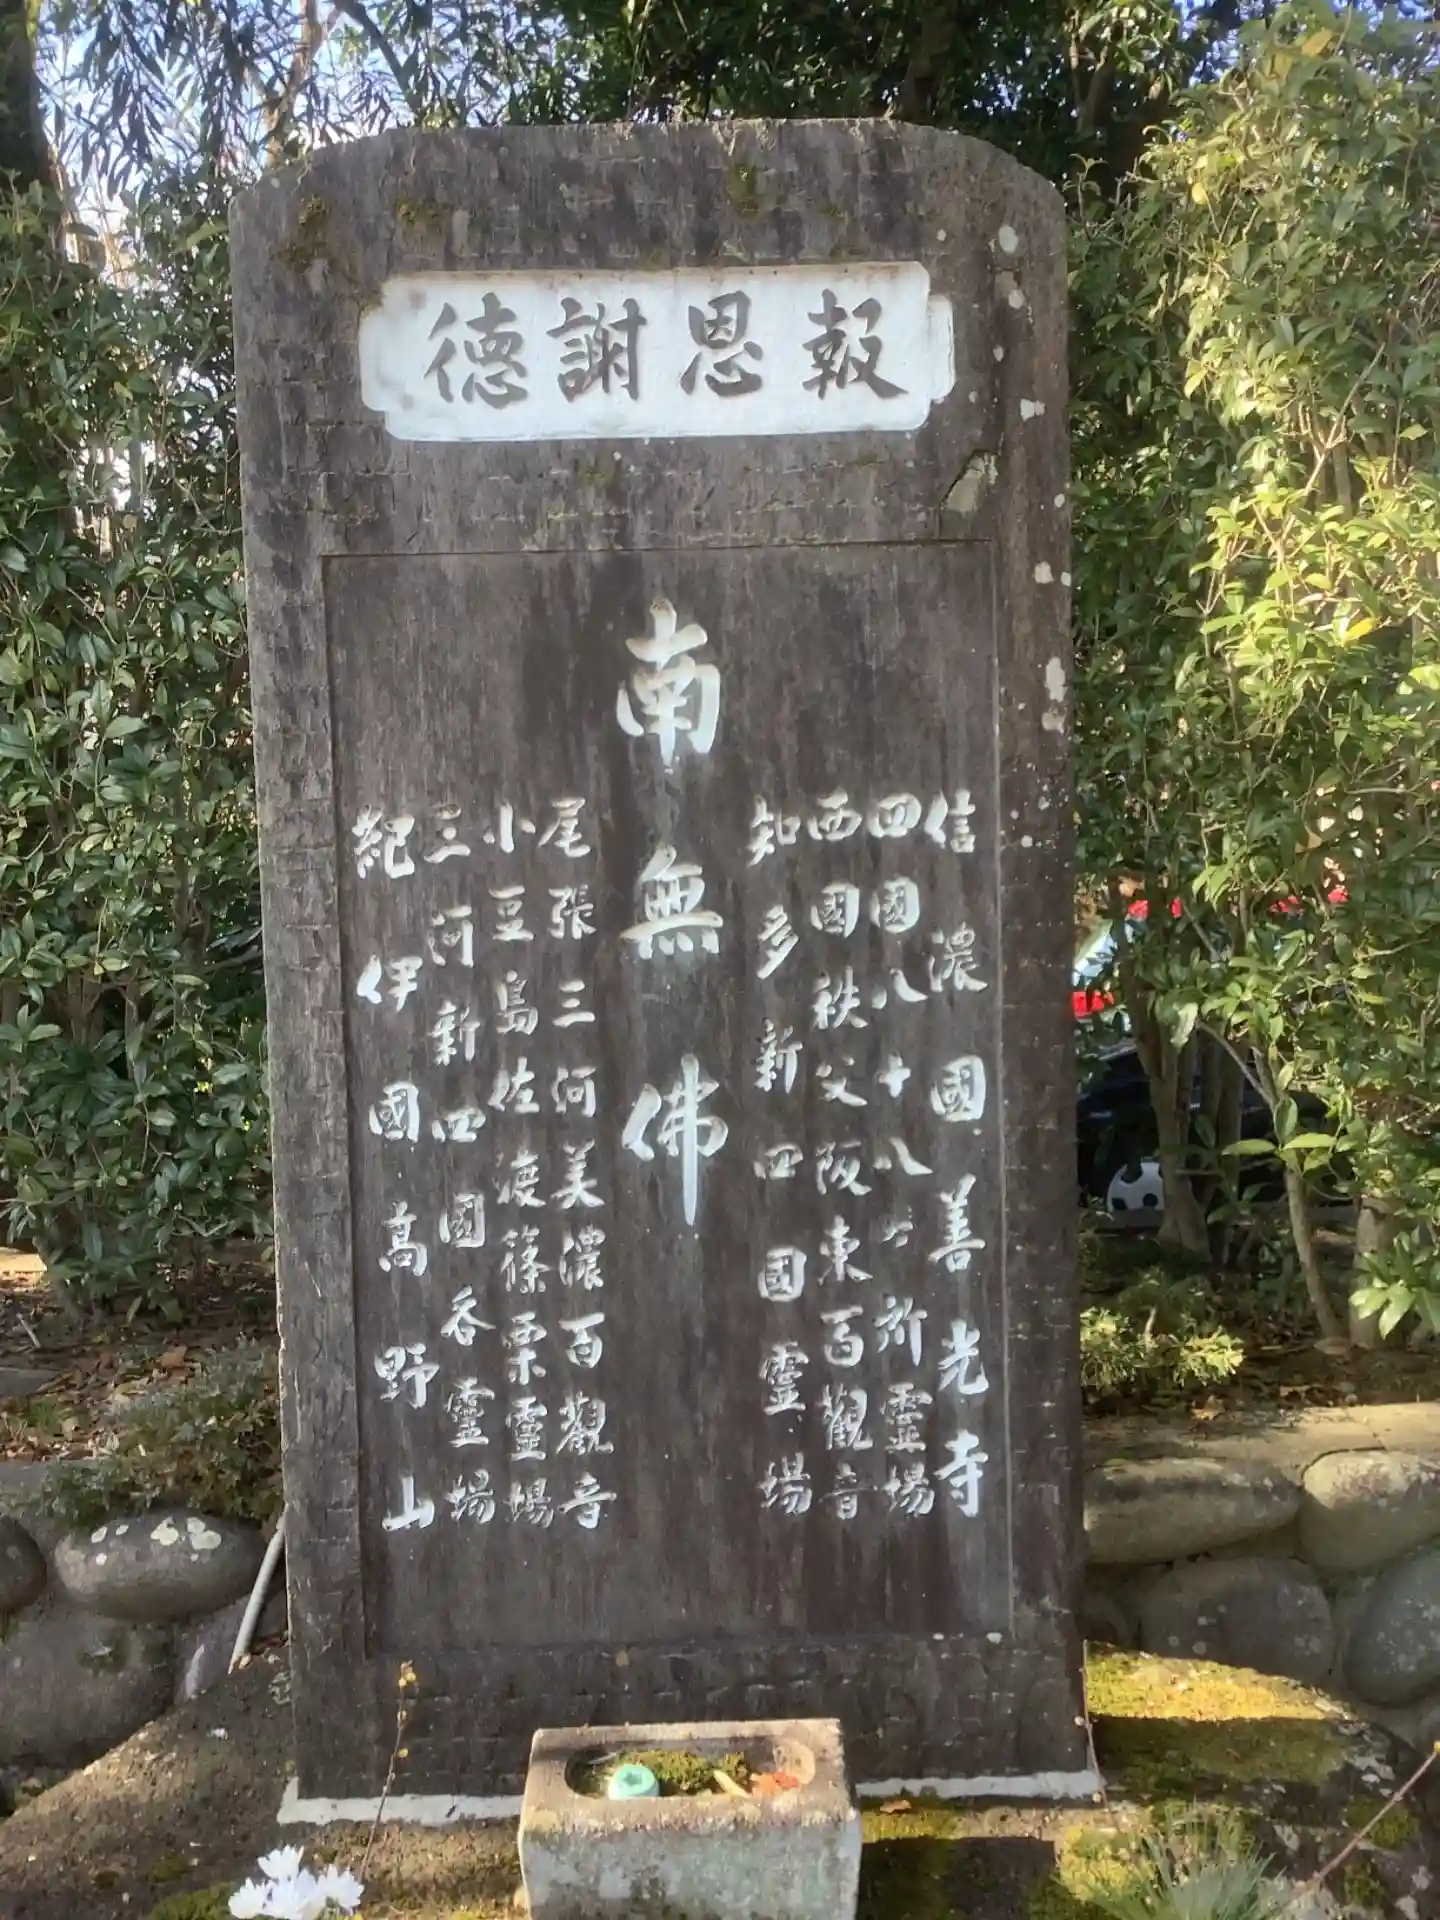 報恩謝德
信濃國善光寺
四國八十八ヶ所靈場
西國秩父阪東百觀音
知多新四國靈場
南無佛
尾張三河美濃百觀音
小豆島佐渡篠栗靈場
三河新四國各靈場
紀伊國高野山